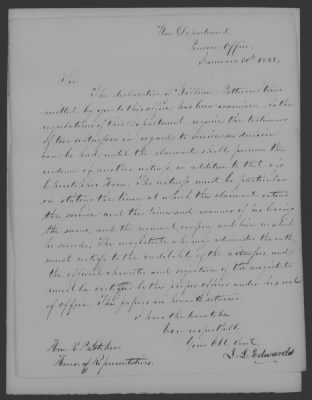 War Department
Pension Office
January 1833.
Sir
The declaration of William Patterson trans-
mitted by you to this office has been examined. As the
regulations of this Department require the testimony
of two witnesses in regard to service no decision
can be had until the claimant shall furnish the
evidence of another witness in addition to that of
The witness must be particular
in stating the time at which the claimant entered
the service and the time and manner of his leaving
the same, and the regiment company and line in which
he served. The magistrate who may administer the oath
must certify to the credibility of the witness and
the official character and signature of the magistrate
must be certified by the proper officer under his seal
of office. The papers are herewith returned.
I have the honor to be
very respectfully
Your Obt Servt.
J. L. Edwards
Hon. R. P. Letcher
House of Representatives